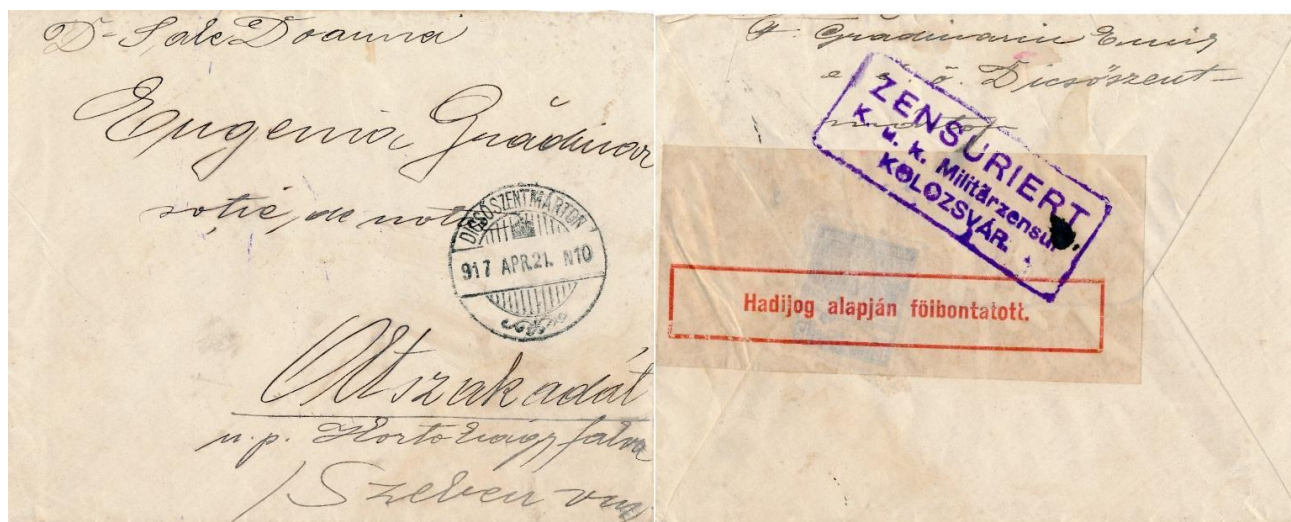 D-Sale Doamnei
Eugenia Grădinar
soție de notar
DICSŐSZENTMÁRTON
917 APR.21. N10
Oltszakadát
u.p. Hortobágyfalva
Szeben vm
Grădinariu
Dicsőszent-
ZENSURIERT
K. u. k. Militärzensur.
KOLOZSVÁR.
Hadijog alapján fölbontatott.